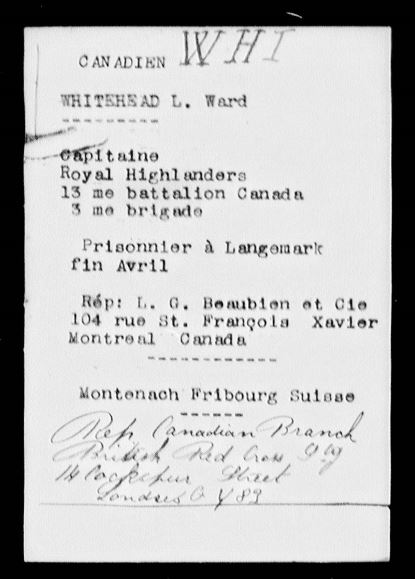 CANADIEN WHI
WHITEHEAD L. Ward
Capitaine
Royal Highlanders
13 me battalion Canada
3 me brigade
Prisonnier à Langemark
fin Avril
Rép: L. G. Beaubien et Cie
104 rue St. François Xavier
Montreal Canada
Montenach Fribourg Suisse
Rep Canadian Branch
British Red Cross
14 Cockspur Street
Londres